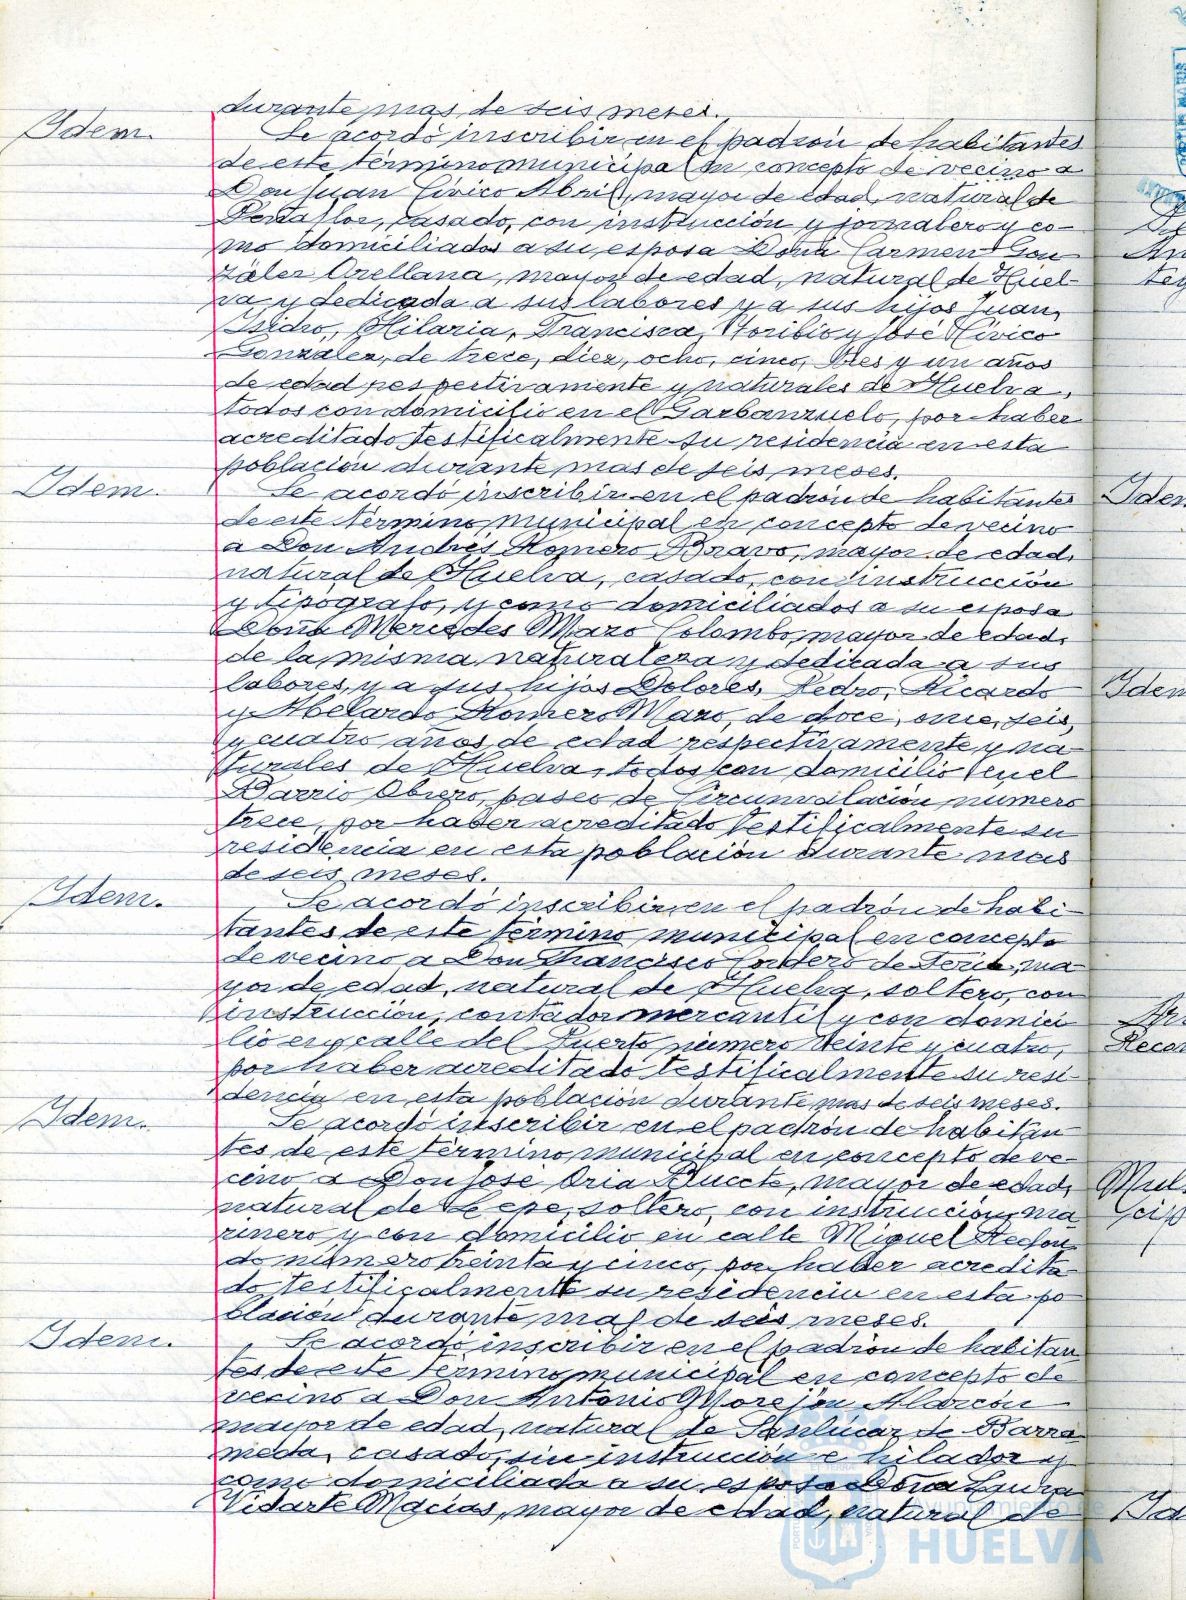 durante mas de seis meses.
Idem.
Se acordó inscribir en el padrón de habitantes
de este término municipal en concepto de vecino a
Don Juan Cívico Abril, mayor de edad, natural de
Peñaflor, casado, con instrucción y jornalero y co-
mo domiciliados a su esposa Doña Carmen Gon
zález Orellana, mayor de edad, natural de Huel-
va y dedicada a sus labores y a sus hijos Juan,
Isidro, Hilaria, Francisca, Toribio y José Cívico
González, de trece, diez, ocho, cinco, tres y un años
de edad respectivamente y naturales de Huelva,
todos con domicilio en el Garbanzuelo, por haber
acreditado testificalmente su residencia en esta
población durante mas de seis meses.
Idem.
Se acordó inscribir en el padrón de habitantes
de este término municipal en concepto de vecino
a Don Andrés Romero Bravo, mayor de edad,
natural de Huelva, casado, con instrucción
y tipógrafo, y como domiciliados a su esposa
Doña Mercedes Mazo Colombo, mayor de edad,
de la misma naturaleza y dedicada a sus
labores, y a sus hijos Dolores, Pedro, Ricardo
y Abelardo Romero Mazo, de doce, once, seis,
y cuatro años de edad respectivamente y na
turales de Huelva, todos con domicilio en el
Barrio Obrero, paseo de Circunvalación número
trece, por haber acreditado testificalmente su
residencia en esta población durante mas
de seis meses.
Idem.
Se acordó inscribir en el padrón de habi-
tantes de este término municipal en concepto
de vecino a Don Francisco Cordero de Feria, ma
yor de edad, natural de Huelva, soltero, con
instrucción, contador mercantil y con domici
lio en calle del Puerto número veinte y cuatro,
por haber acreditado testificalmente su resi-
dencia en esta población durante mas de seis meses.
Idem.
Se acordó inscribir en el padrón de habitan
tes de este término municipal en concepto de ve-
cino a Don José Oria, mayor de edad,
natural de Lepe, soltero, con instrucción, ma
rinero y con domicilio en calle Miguel Redon
do número treinta y cinco, por haber acredita
do testificalmente su residencia en esta po
blación durante mas de seis meses.
Idem.
Se acordó inscribir en el padrón de habitan
tes de este término municipal en concepto de
vecino a Don Antonio Morejón Alarcón
mayor de edad, natural de Sanlúcar de Barra
meda, casado, sin instrucción e hilador y
como domiciliada a su esposa Doña Laura
Vidarte Macías, mayor de edad, natural de
Ayuntamiento de
HUELVA
Idem
Idem
Recon